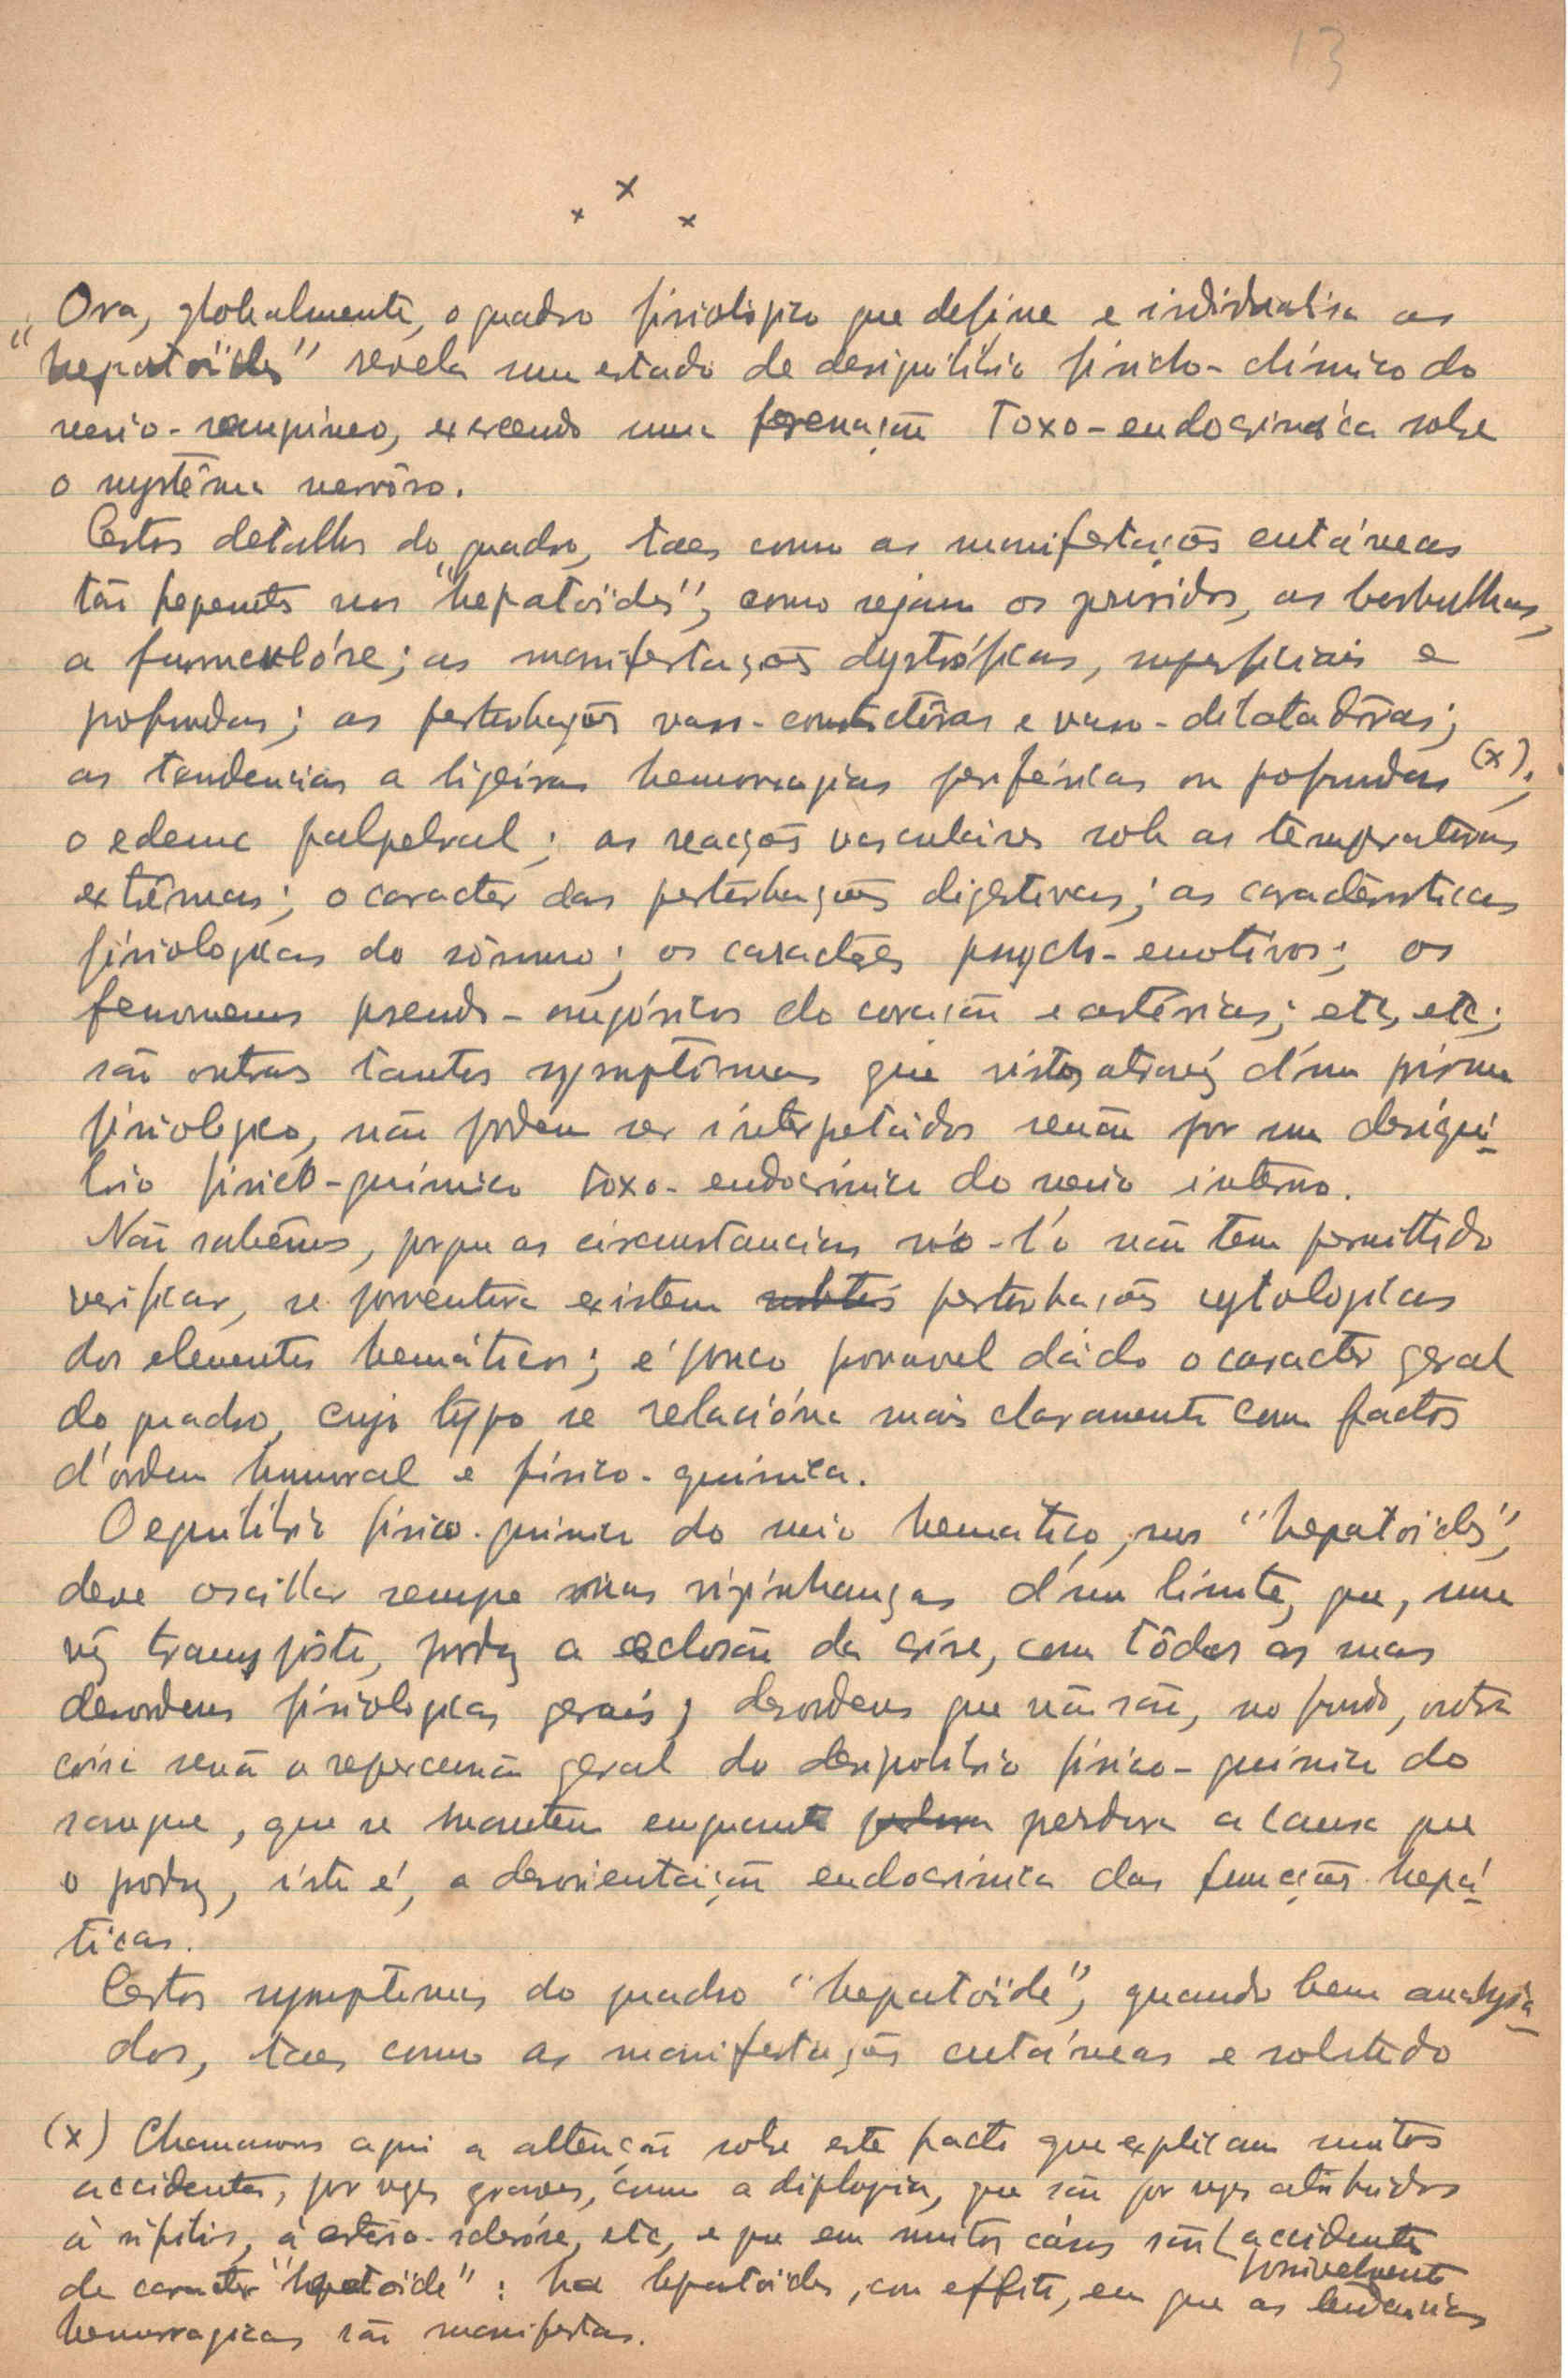 13
x
x x
Ora, globalmente, o quadro fisiologico que define e individualisa as
"hepatoïdes" revela um estado de desiquilibrio fisicho-chimico do
meio-sanguineo, exercendo uma toxo-endocrinica sobre
o systêma nervôso.
Certos detalhes do quadro, taes como as manifestações cutáneas
tão frequentes nos "hepatoïdes", como sejam os pruridos, as borbulhas,
a furunculóse; as manifestações dystróficas, superficiais e
profundas; as perturbações vaso-constrictôras e vaso-dilatadôras;
as tendencias a ligeiras hemorragias periféricas ou profundas (x);
o edema palpebral; as reações vasculaires sob as temperaturas
extrêmas; o caracter das perturbações digestivas; as caractèristicas
fisiologicas do sôno; os caractéres psycho-emotivos; os
fenomenos pseudo-angóricos do coração e artérias; etc, etc;
são outros tantos symptômas que vistos através d'um prisma
fisiologico, não podem ser interpetádos senão por um desiqui-
brio fisico-quimico toxo-endocrinico do meio interno.
Não sabêmos, porque as circumstancias nó-l'o não tem permittido
verificar, se porventura existem perturbações cytologicas
dos elementos hemáticos; é pouco provavel dádo o caracter geral
do quadro, cujo typo se relacióna mais claramente com factos
d'ordem humoral e fisico-quimica.
O equilibrio fisico-quimico do meio hematico, nos "hepatoides",
deve oscillar sempre nas visinhanças d'um limite, que, uma
vêz transpôsto, produz a eclosão da crise, com tôdas as suas
desordens fisiologicas gerais; desordens que não são, no fundo, outra
coisa senão a repercussão geral do desiquilibrio fisico-quimico do
sangue, que se mantem emquanto perdura a causa que
o produz, isto é, a desorientação endocrinica das funcções hepá-
ticas.
Certos symptomas do quadro "hepatoïde", quando bem analysa-
dos, taes como as manifestações cutáneas e sobretudo
(x) Chamamos aqui a attenção sobre este facto que explicam muitos
accidentes, por vezes graves, como a diplopia, que são por vezes atribuidos
à sifilis, à artério-scleróse, etc, e que em muitos cásos são possivelmente accidentes
de caracter "hepatoïde": ha hepatoïdes, com effeito, em que as tendencias
hemorragicas são manifestas.